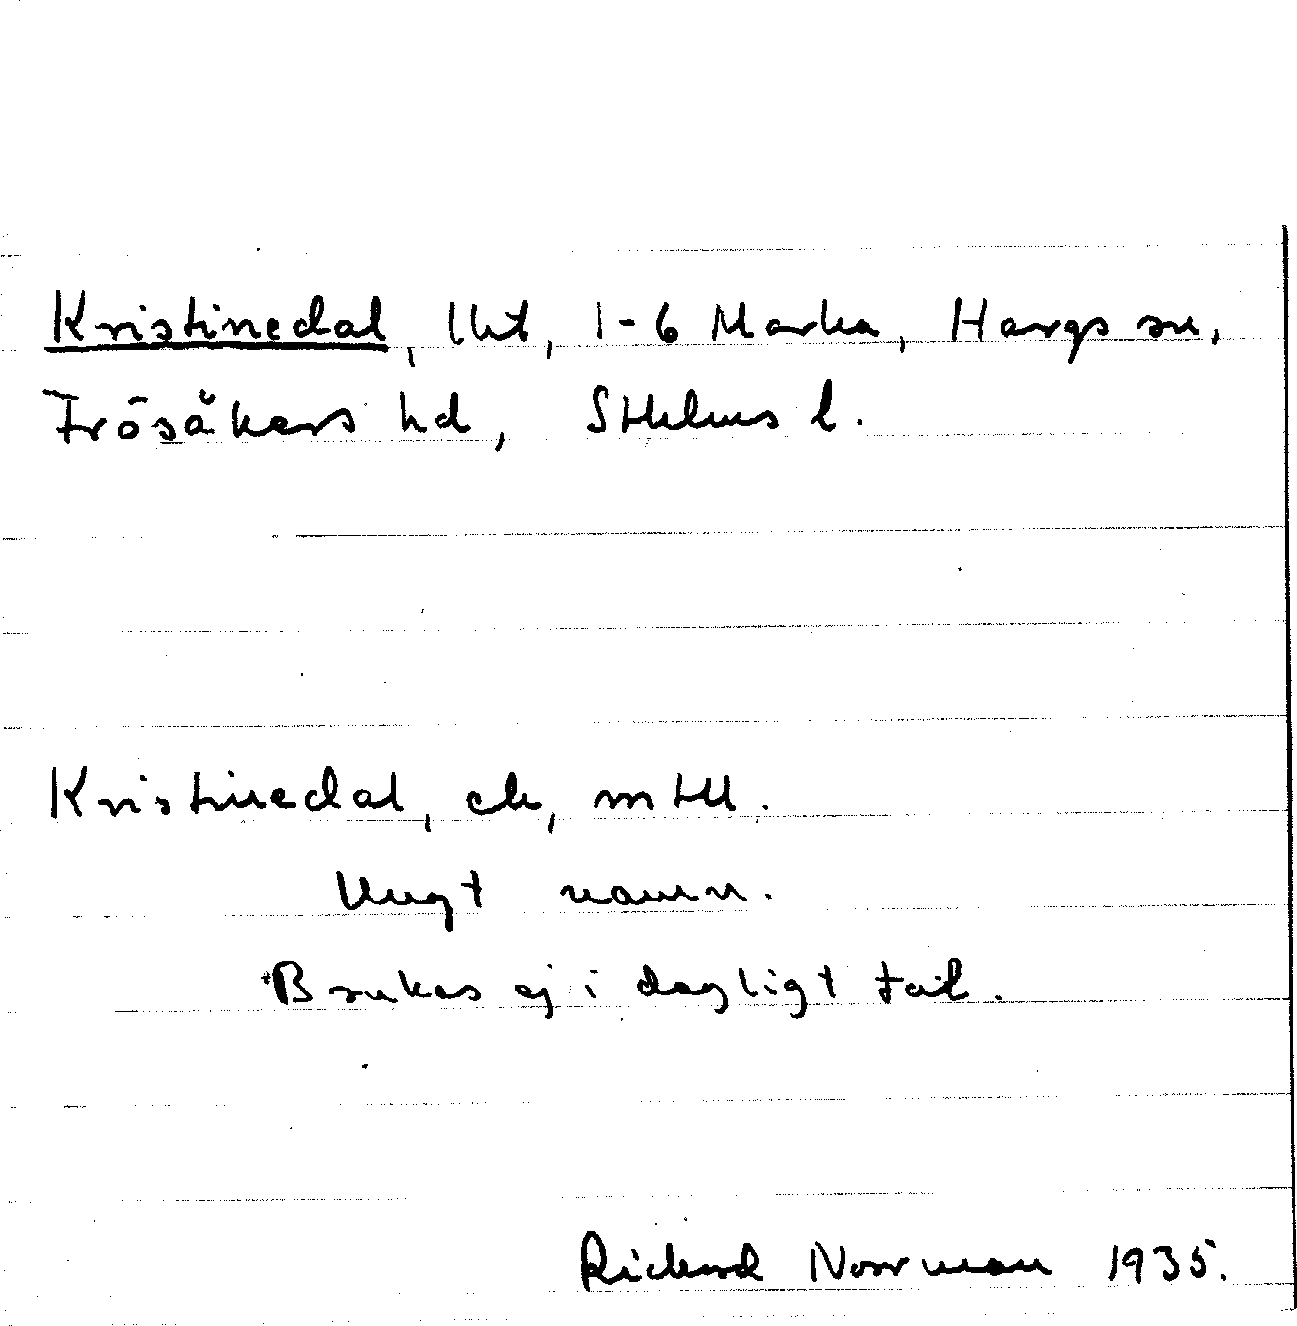 Kristinedal, lht, 1-6 Marka, Hargs sn,
Frösåkers hd, Sthlms l.
Kristinedal, ek, mtll.
Ungt namn.
Brukas ej i dagligt tal.
Rickard Norrman 1935.